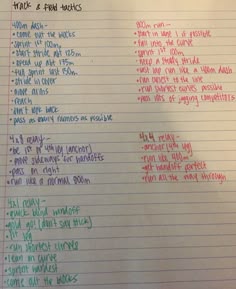 track & field tactics
400m dash-
• come out the blocks
• sprint 1st 100m
• start stride at 125m
• speed up at 175m
• full sprint last 150m
• stride in curve
• move arms
• reach
• don't look back
• pass as many runners as possible
800m run-
• start in lane 1 if possible
• run into the curve
• sprint 1st 100m
• keep a steady stride
• last lap run like a 400m dash
• run closest to the line
• run shortest curves possible
• pass lots of jogging competitors
4x8 relay-
• be 1st or 4th leg (anchor)
• move sideways for handoffs
• pass on right
• run like a normal 800m
4x4 relay-
• anchor/4th leg
• run like 400m
• get handoff perfect
• run all the way through
4x1 relay-
• quick blind handoff
• and go! (don't say stick)
• 1st leg
• run shortest curves
• lean on curve
• sprint hardest
• come out the blocks